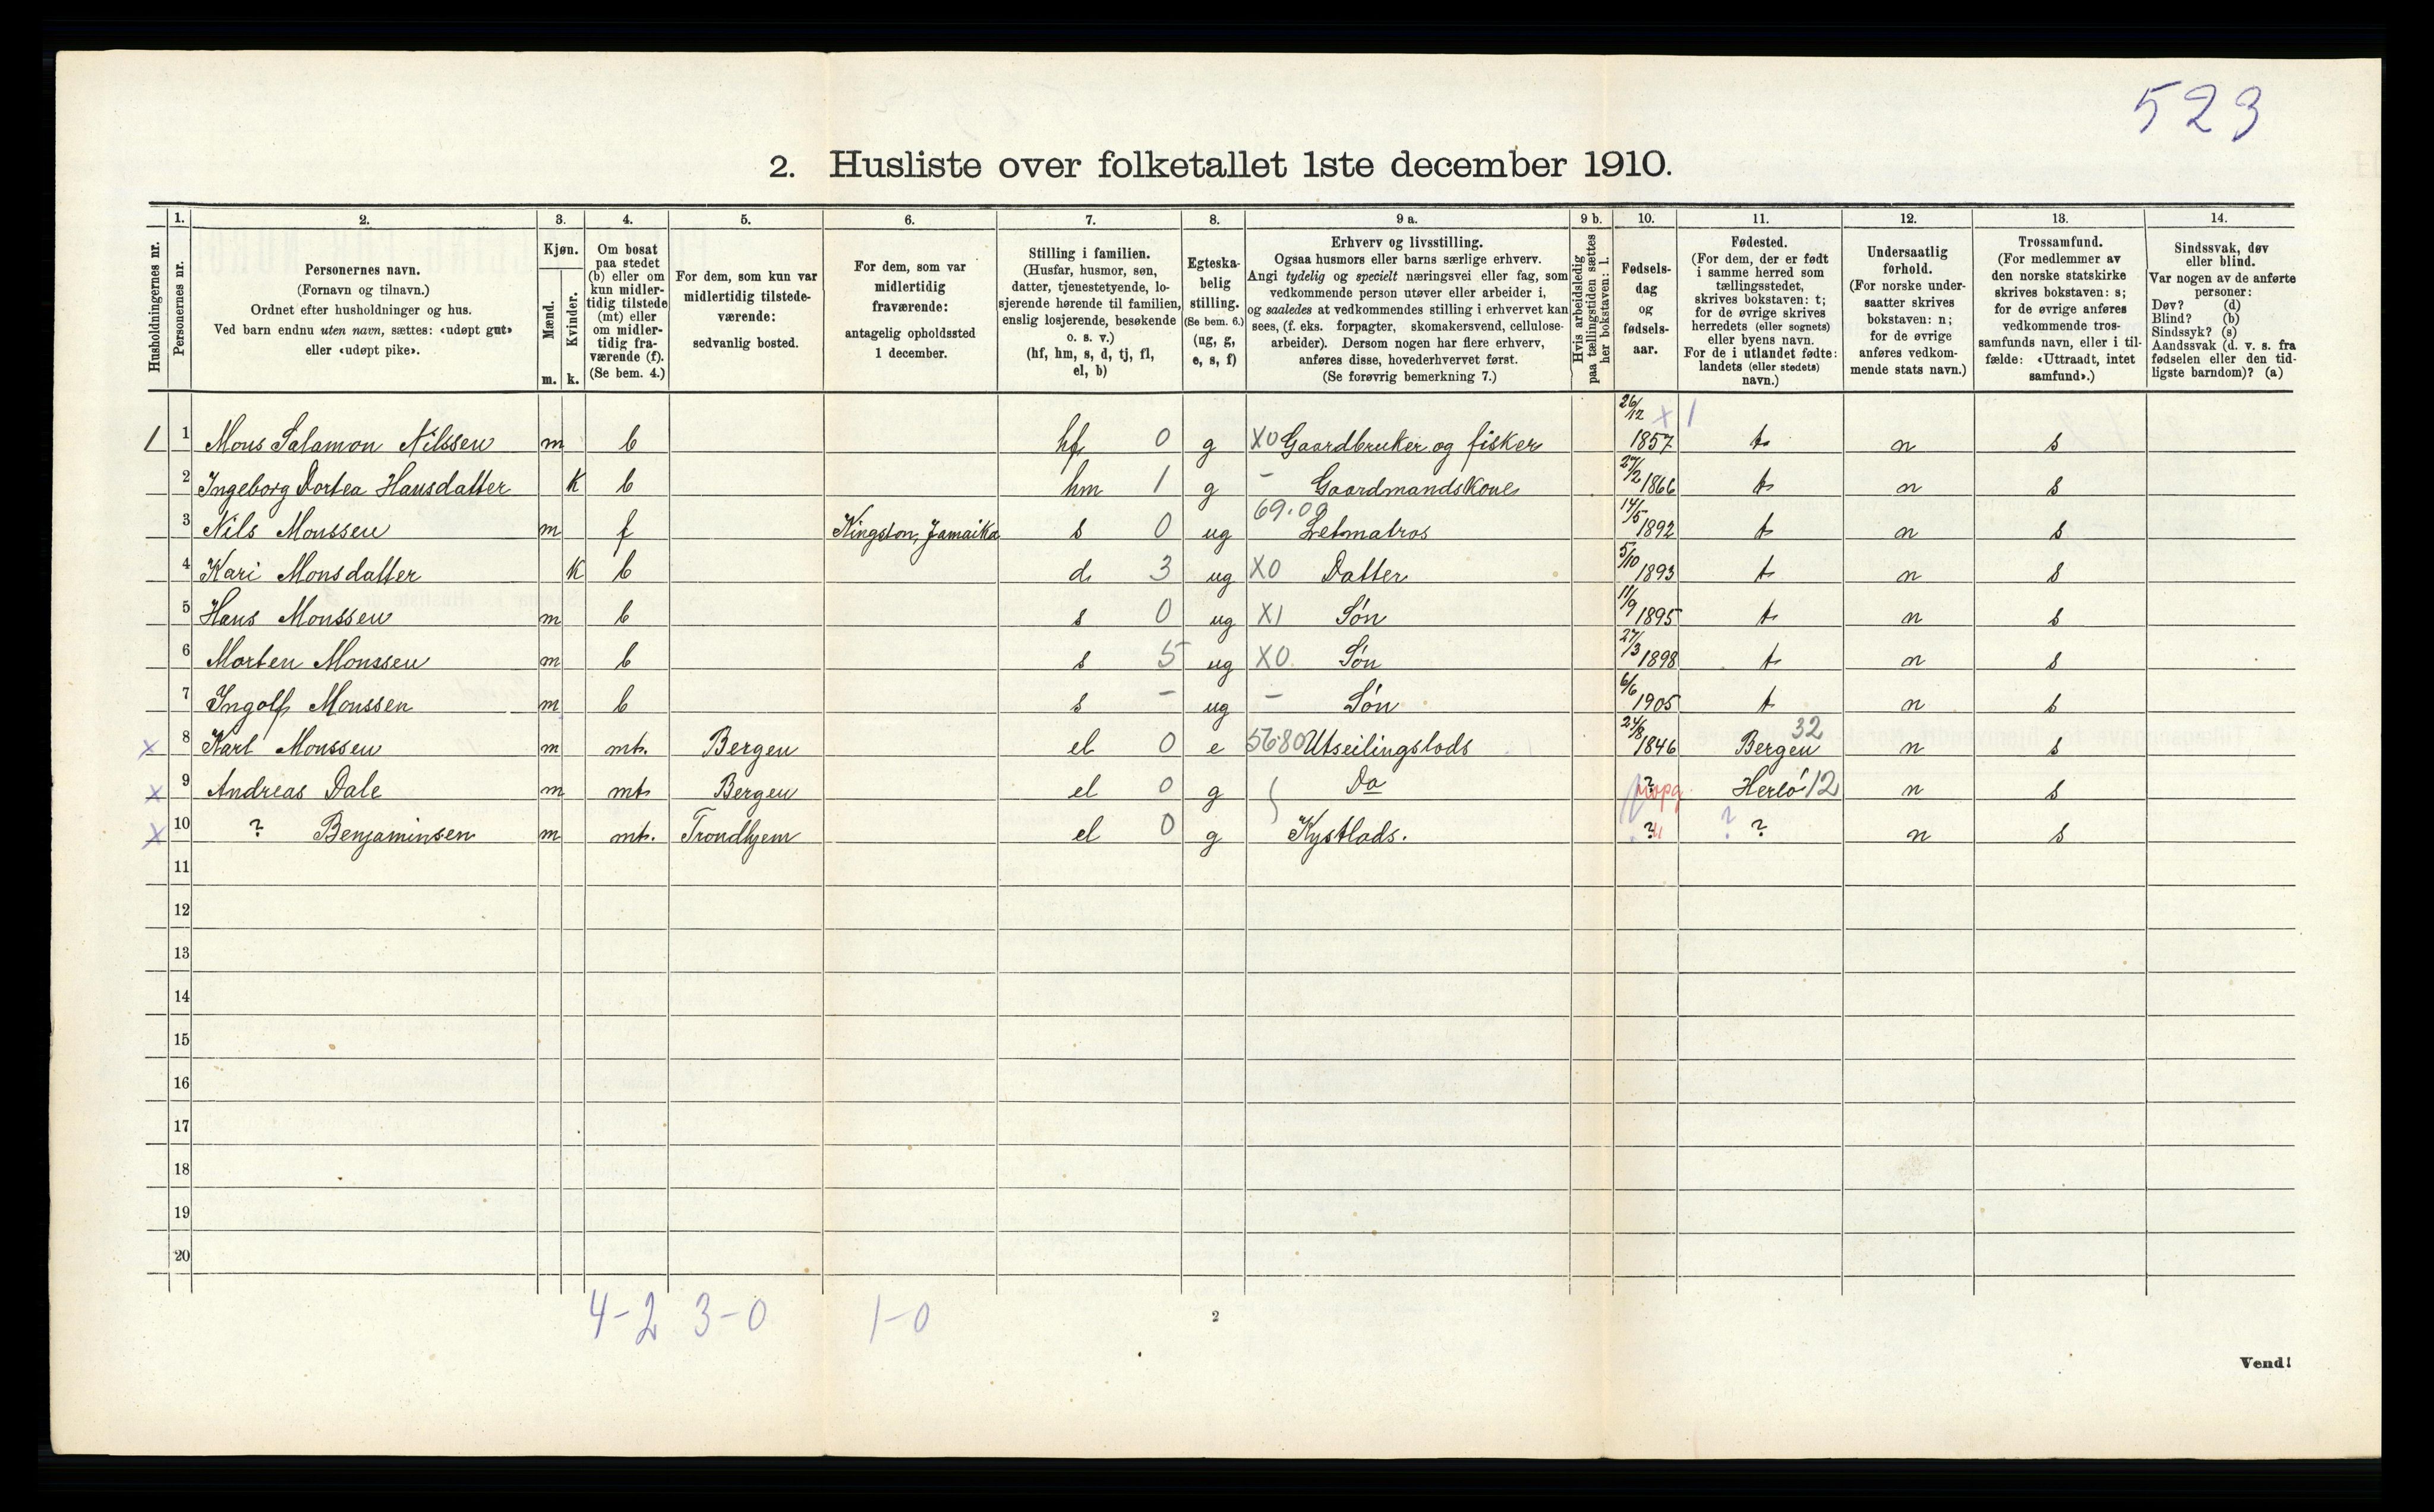 523
2. Husliste over folketallet 1ste december 1910.
Husholdningernes nr.
1. Personernes nr.
2. Personernes navn.
(Fornavn og tilnavn.)
Ordnet efter husholdninger og hus.
Ved barn endnu uten navn, sættes: «udøpt gut»
eller «udøpt pike».
3. Kjøn.
Mænd. m.
Kvinder. k.
4. Om bosat
paa stedet
(b) eller om
kun midler-
tidig tilstede
(mt) eller
om midler-
tidig fra-
værende (f).
(Se bem. 4.)
5. For dem, som kun var
midlertidig tilstede-
værende:
sedvanlig bosted.
6. For dem, som var
midlertidig
fraværende:
antagelig opholdssted
1 december.
7. Stilling i familien.
(Husfar, husmor, søn,
datter, tjenestetyende, lo-
sjerende hørende til familien,
enslig losjerende, besøkende
o. s. v.)
(hf, hm, s, d, tj, fl,
el, b)
8. Egteska-
belig
stilling.
(Se bem. 6.)
(ug, g,
e, s, f)
9 a. Erhverv og livsstilling.
Ogsaa husmors eller barns særlige erhverv.
Angi tydelig og specielt næringsvei eller fag, som
vedkommende person utøver eller arbeider i,
og saaledes at vedkommendes stilling i erhvervet kan
sees, (f. eks. forpagter, skomakersvend, cellulose-
arbeider). Dersom nogen har flere erhverv,
anføres disse, hovederhvervet først.
(Se forøvrig bemerkning 7.)
9 b. Hvis arbeidsledig
paa tællingstiden sættes
her bokstaven: l.
10. Fødsels-
dag
og
fødsels-
aar.
11. Fødested.
(For dem, der er født
i samme herred som
tællingsstedet,
skrives bokstaven: t;
for de øvrige skrives
herredets (eller sognets)
eller byens navn.
For de i utlandet fødte:
landets (eller stedets)
navn.)
12. Undersaatlig
forhold.
(For norske under-
saatter skrives
bokstaven: n;
for de øvrige
anføres vedkom-
mende stats navn.)
13. Trossamfund.
(For medlemmer av
den norske statskirke
skrives bokstaven: s;
for de øvrige anføres
vedkommende tros-
samfunds navn, eller i til-
fælde: «Uttraadt, intet
samfund».)
14. Sindssvak, døv
eller blind.
Var nogen av de anførte
personer:
Døv? (d)
Blind? (b)
Sindssyk? (s)
Aandssvak (d. v. s. fra
fødselen eller den tid-
ligste barndom)? (a)
1 1 Mons Salamon Nilssen m b hf 0 g X0 Gaardbruker og fisker 26/12 1857 x 1 t n s
2 Ingeborg Dortea Hansdatter K b hm 1 g - Gaardmandskone 27/2 1866 t n s
3 Nils Monssen m f Kingston, Jamaika s 0 ug 69.09 Letmatros 14/5 1892 t n s
4 Kari Monsdatter K b d 3 ug X0 Datter 5/10 1893 t n s
5 Hans Monssen m b s 0 ug X1 Søn 11/9 1895 t n s
6 Morten Monssen m b s 5 ug X0. Søn 27/3 1898 t n s
7 Ingolf Monssen m b s - ug - Søn 6/6 1905 t n s
x 8 Karl Monssen m mt. Bergen el 0 e 5680 Utseilingslods 24/8 1846 Bergen 32 n s
x 9 Andreas Dale m mt Bergen el 0 g Do ? Herlö 12 n s
x 10 ? Benjaminsen m mt. Trondhjem el 0 g Kystlods. ? ? ? n s
11
12
13
14
15
16
17
18
19
20
4-2 3-0 1-0
2
Vend!